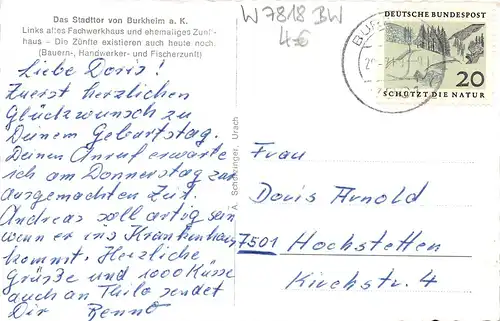 Das Stadttor von Burkheim a. K.
Links altes Fachwerkhaus und ehemaliges Zunft-
haus - Die Zünfte existieren auch heute noch
(Bauern-, Handwerker- und Fischerzunft)
W 7818 BW
4€
Liebe Doris!
Zuerst herzlichen
Glückwunsch zu
Deinem Geburtstag.
Deinen Anruf erwarte
ich am Donnerstag zur
ausgemachten Zeit.
Andreas soll artig sein
wenn er ins Krankenhaus
kommt. Herzliche
Grüße und 1000 Küsse
auch an Thilo sendet
Dir Benno
A. Urach
DEUTSCHE BUNDESPOST
20
SCHÜTZT DIE NATUR
BU
Frau
Doris Arnold
7501 Hochstetten
Kirchstr. 4